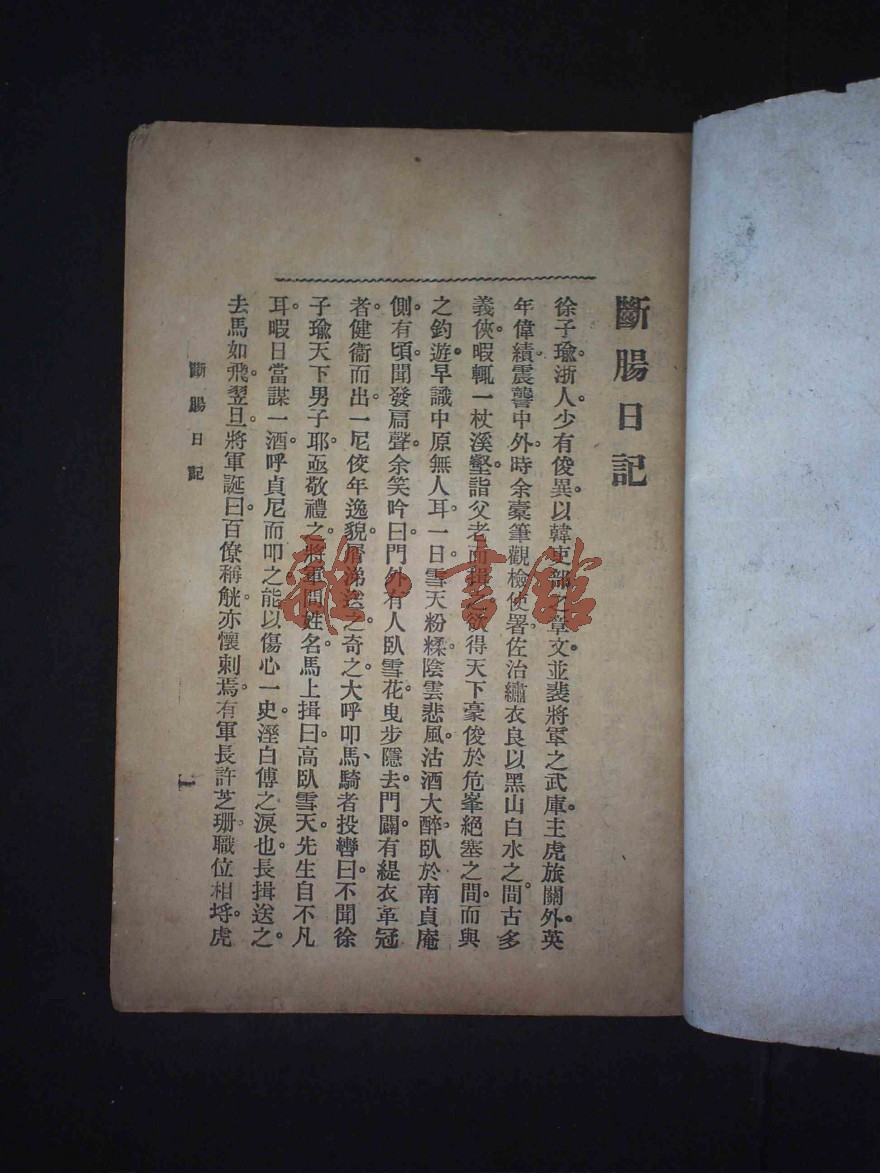 斷腸日記
徐子瑜。浙人。少有俊異。以韓吏部之章文。並裴將軍之武庫。主虎旅關外。英
年偉績。震讋中外。時余槖筆觀檢使署。佐治繡衣。良以黑山白水之間。古多
義俠。暇輒一杖溪壑。詣父老而揖之。欲得天下豪俊於危峯絕塞之間。而與
之釣遊。早識中原無人耳。一日。雪天粉糅。陰雲悲風。沽酒大醉。臥於南貞庵
側。有頃。聞發扃聲。余笑吟曰。門外有人臥雪花。曳步隱去。門闢。有緹衣革冠
者。健衞而出。一尼佼年逸貌。屑涕送之。奇之。大呼叩馬、騎者投轡曰。不聞徐
子瑜天下男子耶。亟敬禮之。將軍問姓名。馬上揖曰。高臥雪天。先生自不凡
耳。暇日當謀一酒。呼貞尼而叩之。能以傷心一史。溼白傅之淚也。長揖送之。
去馬如飛。翌旦。將軍誕日。百僚稱觥。亦懷刺焉。有軍長許芝珊。職位相埒。虎
斷腸日記
一
龍書館